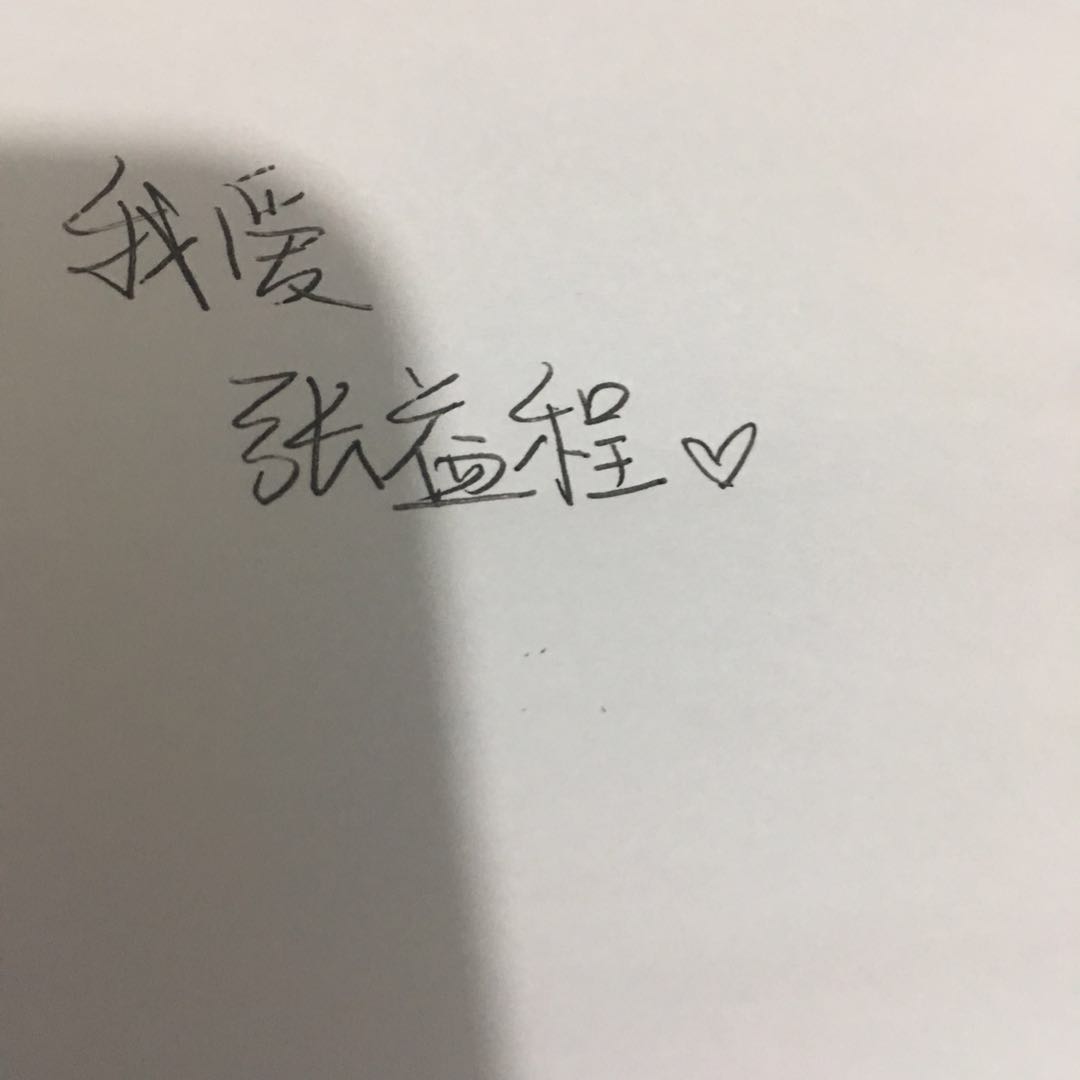 我爱
张益程♡